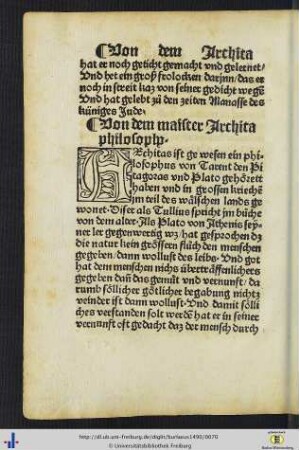 ¶Von dem Archita
hat er noch geticht gemacht vnd gelernet/
Vnd het ein groß frolocken darinn/das er
noch in streit kaz von seiner gedicht wegē
Vnd hat gelebt zů den zeiten Manasse des
küniges Jude.
¶Von dem maister Archita
philosophus.
ARchitas ist ge wesen ein phi-
losophus von Tarent den Pi
tagoras vnd Plato gehörent
haben vnd in grossen kriechē
im teil des wälschen lands ge
wonet. Diser als Tullius spricht jm bůche
von dem alter. Als Plato von Athenis sey-
ner ler gegenwertig wz/ hat gesprochen dz
die natur kein grössern flůch den menschen
gegeben/dann wollust des leibs. Vnd got
hat dem menschen nichs übertreffenlichers
gegeben dañ das gemüt vnd vernunft/ da
rumb söllicher götlicher begabung nichtz
veinder ist dann wollust. Vnd damit sölli
ches verstanden solt werdē hat er in seiner
vernunft oft gedacht daz der mensch durch
http://dl.ub.uni-freiburg.de/diglit/burlaeus1490/0070
© Universitätsbibliothek Freiburg